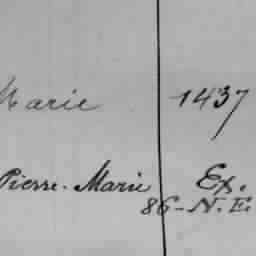 Marie 1437
Pierre-Marie Ex.
86-N.E.